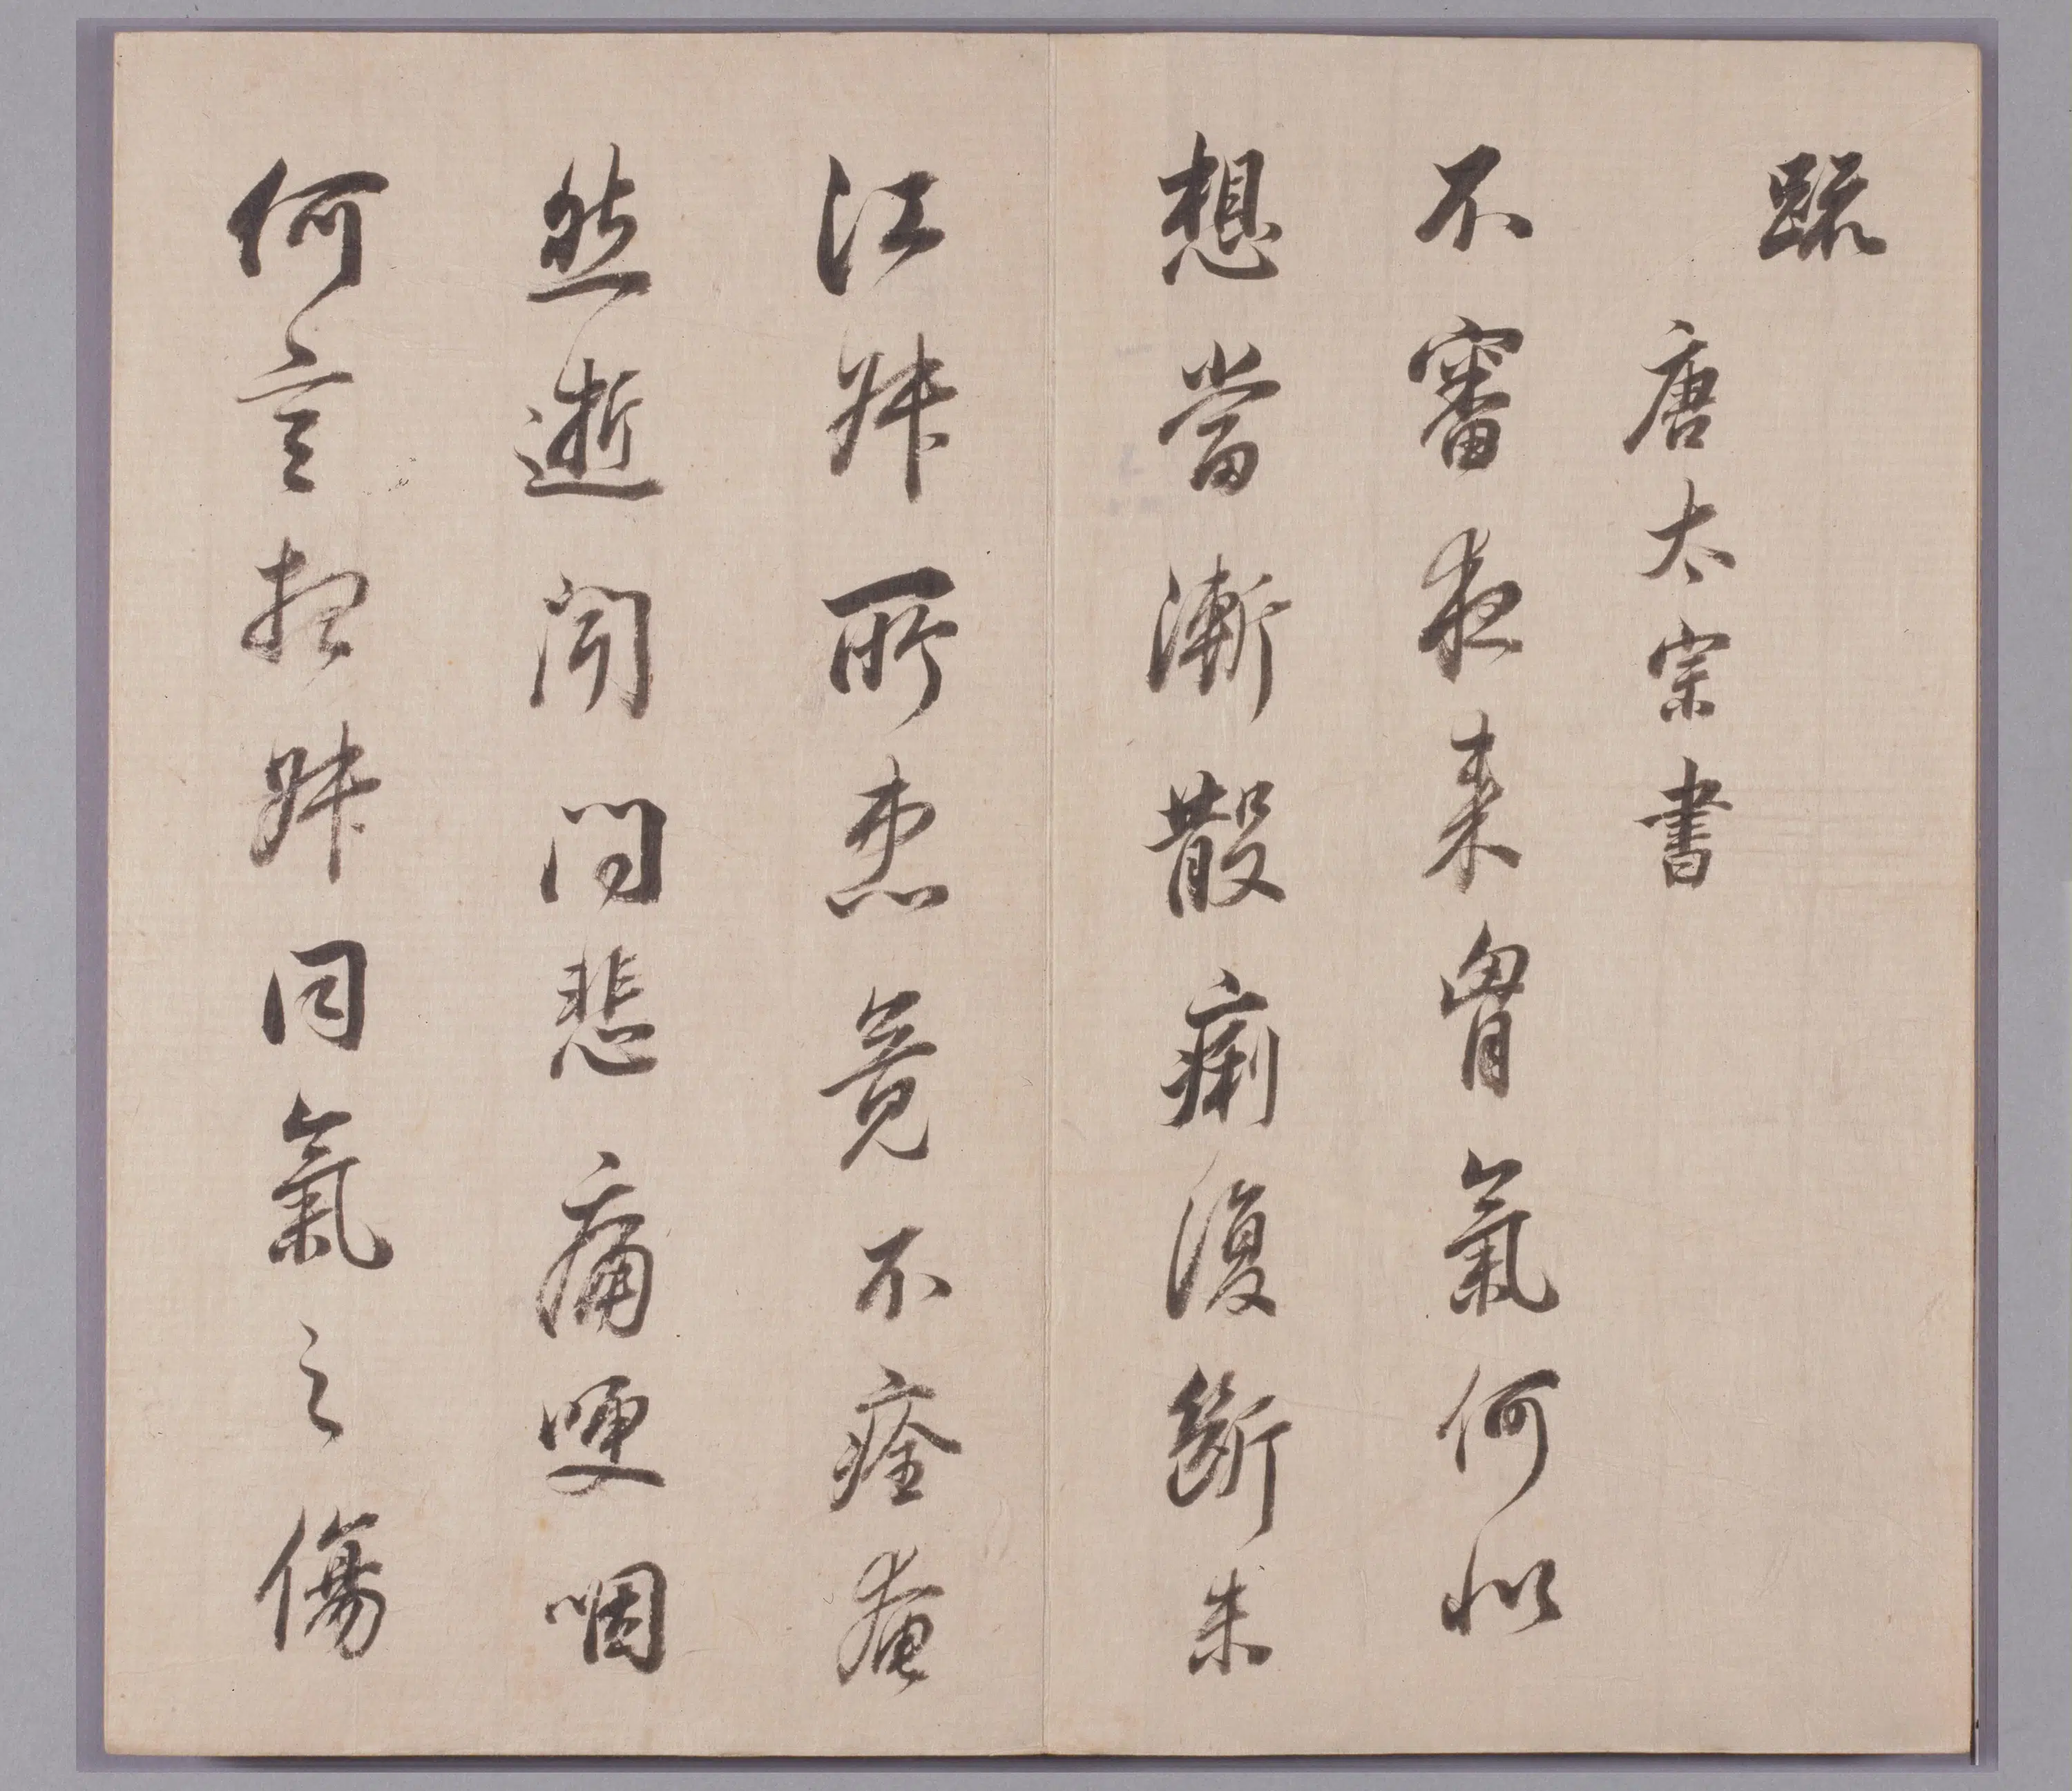 疏
唐太宗書
不審夜來胷氣何似
想當漸散痢復斷未
江叔所患竟不痊奄
然逝聞問悲痛哽咽
何言想叔同氣之傷